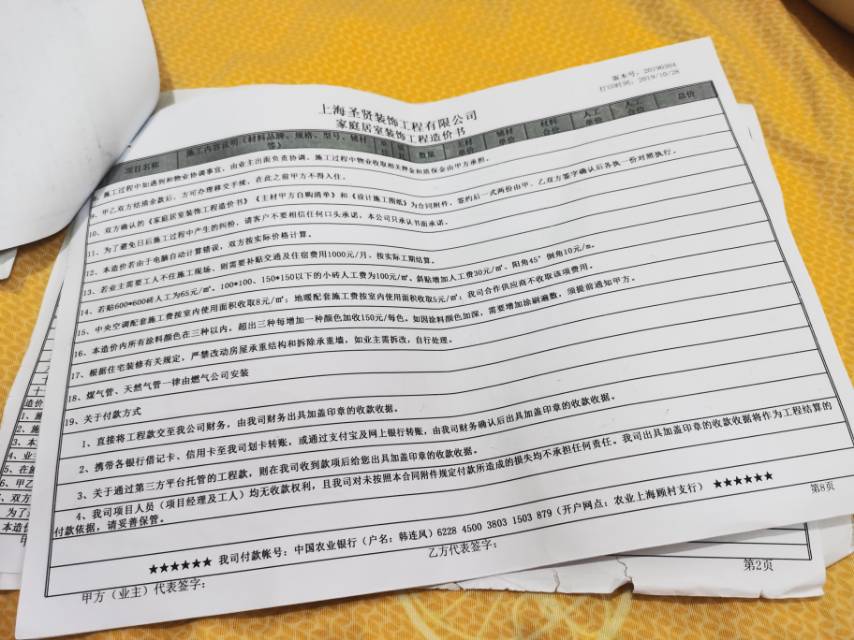 版本号：20190304
打印时间：2019/10/28
上海圣贤装饰工程有限公司
家庭居室装饰工程造价书
项目名称 施工内容说明（材料品牌、规格、型号、辅材等） 数量 主材单价 辅材单价 材料合价 人工单价 人工合价 总价
施工过程中如遇到和物业协调事宜，由业主出面负责协调。施工过程中物业收取相关押金和质保金由甲方承担。
9、甲乙双方结清余款后，方可办理移交手续，在此之前甲方不得入住。
10、双方确认的《家庭居室装饰工程造价书》《主材甲方自购清单》和《设计施工图纸》为合同附件，签约后一式两份由甲、乙双方签字确认后各执一份对照执行。
11、为了避免日后施工过程中产生的纠纷，请客户不要相信任何口头承诺，本公司只承认书面承诺。
12、本造价若由于电脑自动计算错误，双方按实际价格计算。
13、若业主需要工人不住施工现场，则需要补贴交通及住宿费用1000元/月，按实际工期结算。
14、若贴600*600砖人工为65元/㎡，100*100、150*150以下的小砖人工费为100元/㎡，斜贴增加人工费30元/㎡，阳角45°倒角10元/m。
15、中央空调配套施工费按室内使用面积收取8元/㎡；地暖配套施工费按室内使用面积收取5元/㎡；我司合作供应商不收取该项费用。
16、本造价内所有涂料颜色在三种以内，超出三种每增加一种颜色加收150元/每色。如因涂料颜色加深，需要增加涂刷遍数，须提前通知甲方。
17、根据住宅装修有关规定，严禁改动房屋承重结构和拆除承重墙，如业主需拆改，自行处理。
18、煤气管、天然气管一律由燃气公司安装
19、关于付款方式
1、直接将工程款交至我公司财务，由我司财务出具加盖印章的收款收据。
2、携带各银行借记卡、信用卡至我司划卡转账，或通过支付宝及网上银行转账，由我司财务确认后出具加盖印章的收款收据。
3、关于通过第三方平台托管的工程款，则在我司收到款项后给您出具加盖印章的收款收据。
4、我司项目人员（项目经理及工人）均无收款权利，且我司对未按照本合同附件规定付款所造成的损失均不承担任何责任。我司出具加盖印章的收款收据将作为工程结算的
付款依据，请妥善保管。
★★★★★★ 我司付款帐号：中国农业银行（户名：韩连风）6228 4500 3803 1503 879（开户网点：农业上海顾村支行） ★★★★★★
第8页
甲方（业主）代表签字： 乙方代表签字：
第2页